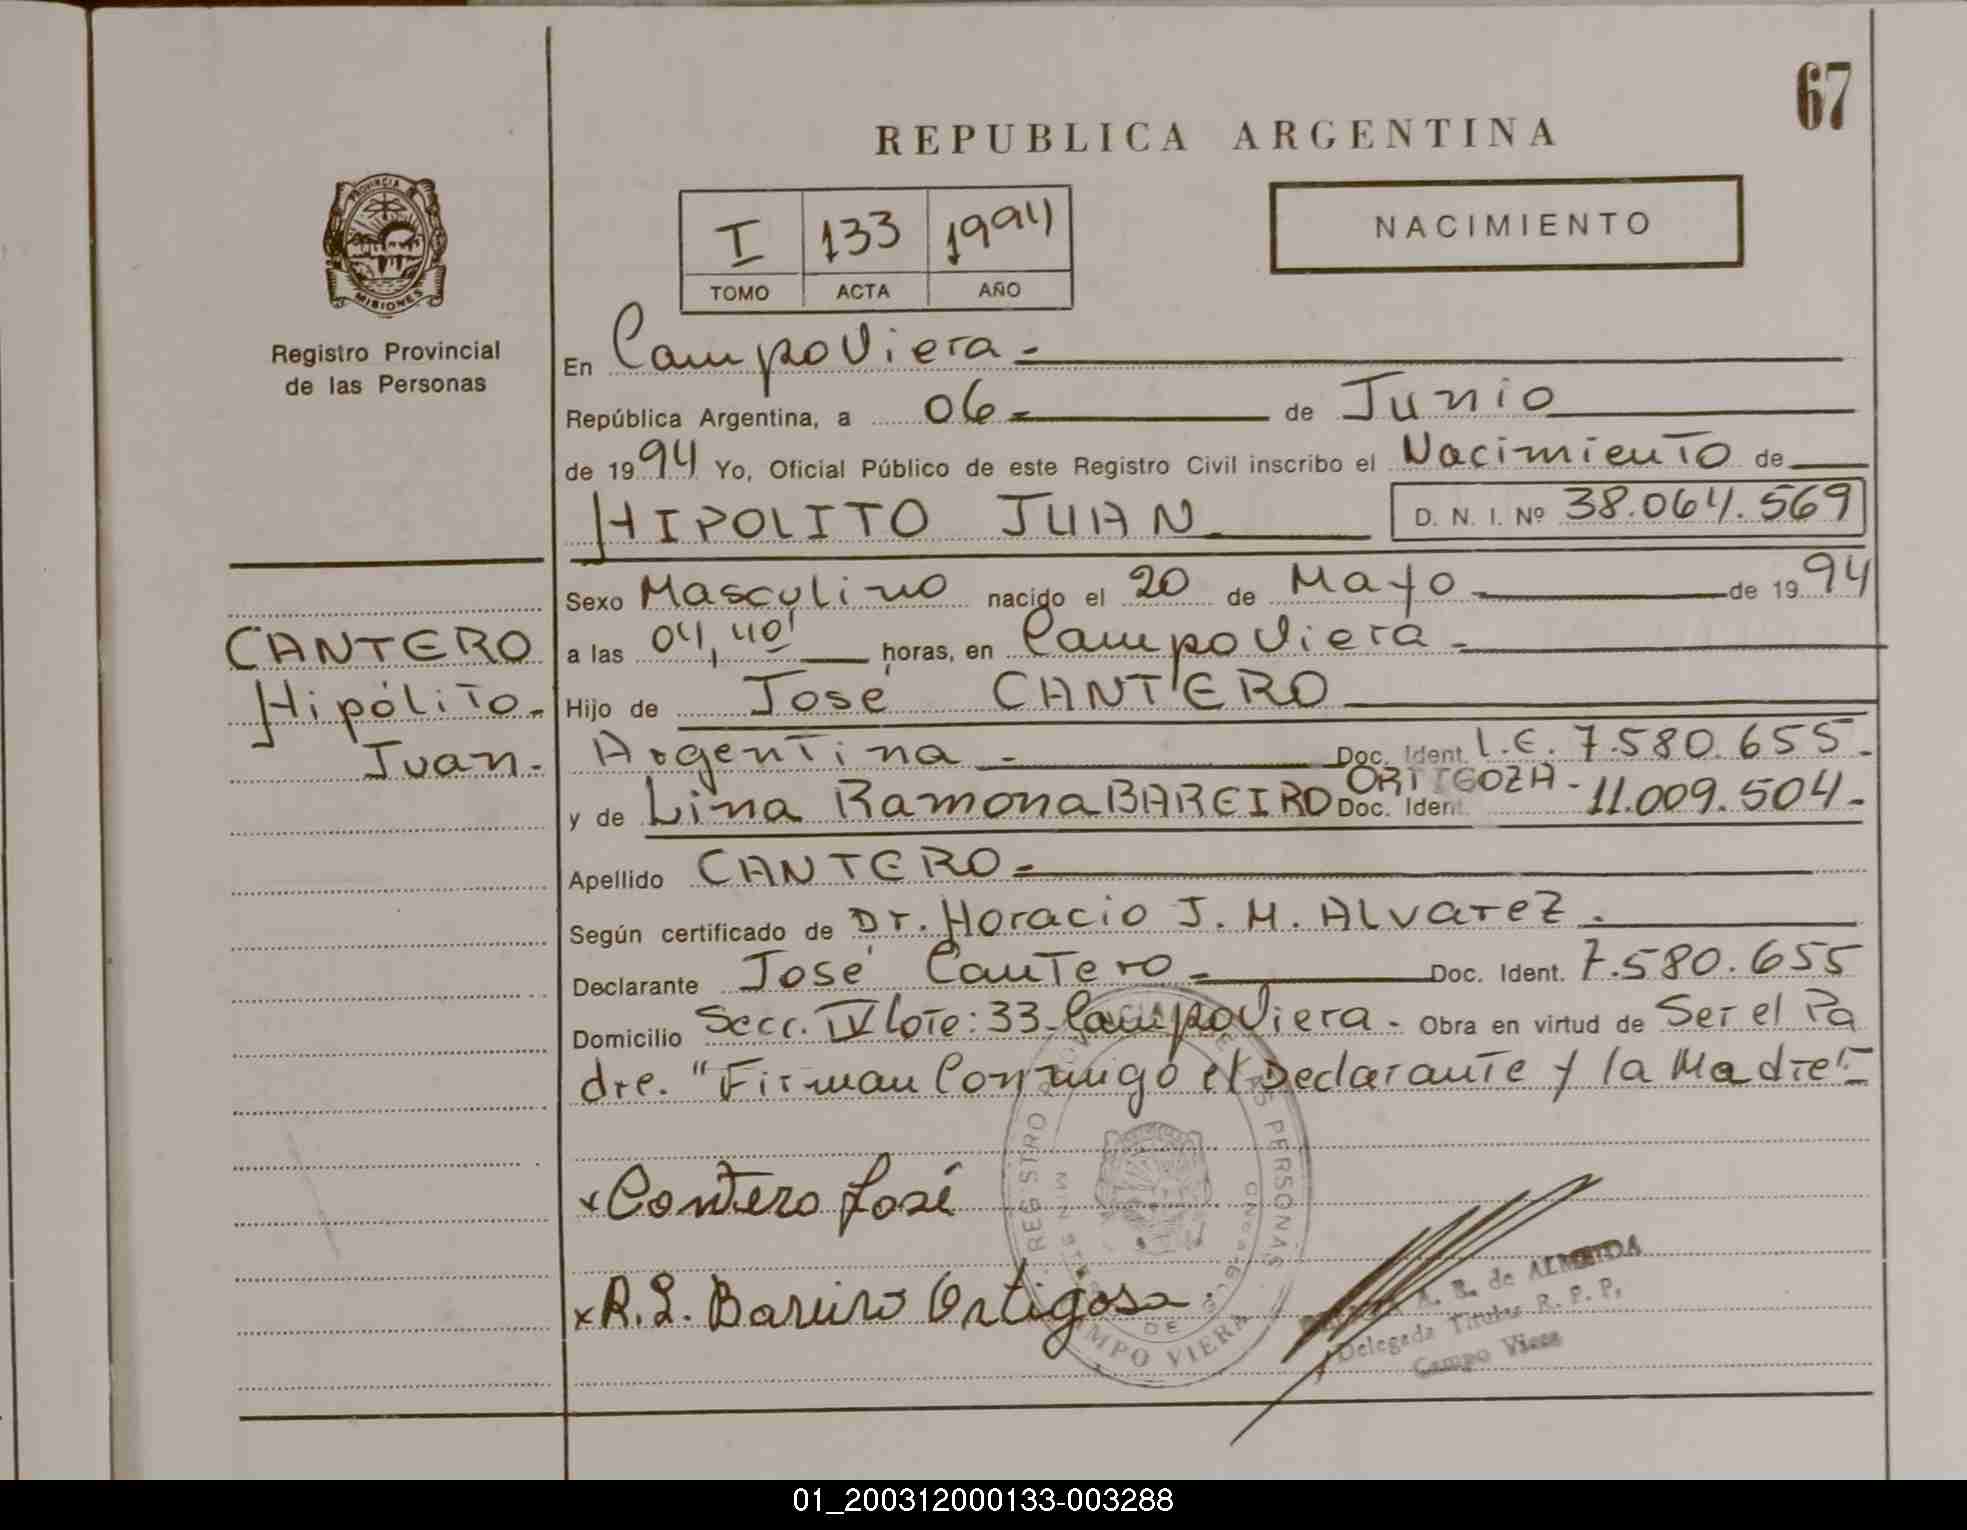 67
REPUBLICA ARGENTINA
PROVINCIA DE
MISIONES
Registro Provincial
de las Personas
I 133 1994
TOMO ACTA AÑO
NACIMIENTO
En Campo Viera -
República Argentina, a 06 - de Junio
de 1994 Yo, Oficial Público de este Registro Civil inscribo el Nacimiento de
HIPOLITO JUAN D. N. I. Nº 38.064.569
Sexo Masculino nacido el 20 de Mayo de 1994
CANTERO
Hipólito -
Juan -
a las 04,40' horas, en Campo Viera -
Hijo de José CANTERO
Argentina - Doc. Ident. L.E. 7.580.655 -
y de Lina Ramona BAREIRO ORTIGOZA - Doc. Ident. 11.009.504 -
Apellido CANTERO -
Según certificado de Dr. Horacio J. M. ALvarez -
Declarante José Cantero - Doc. Ident. 7.580.655
Domicilio Secc. IV Lote: 33 - Campo Viera - Obra en virtud de Ser el Pa
dre. "Firman Conmigo el Declarante y la Madre" -
x Contero José
x R. L. Bareiro Ortigosa.
REGISTRO PERSONAS
DE
CAMPO VIERA
A. B. de ALMEIDA
Delegada Titular R. P. P.
Campo Viera
01_200312000133-003288